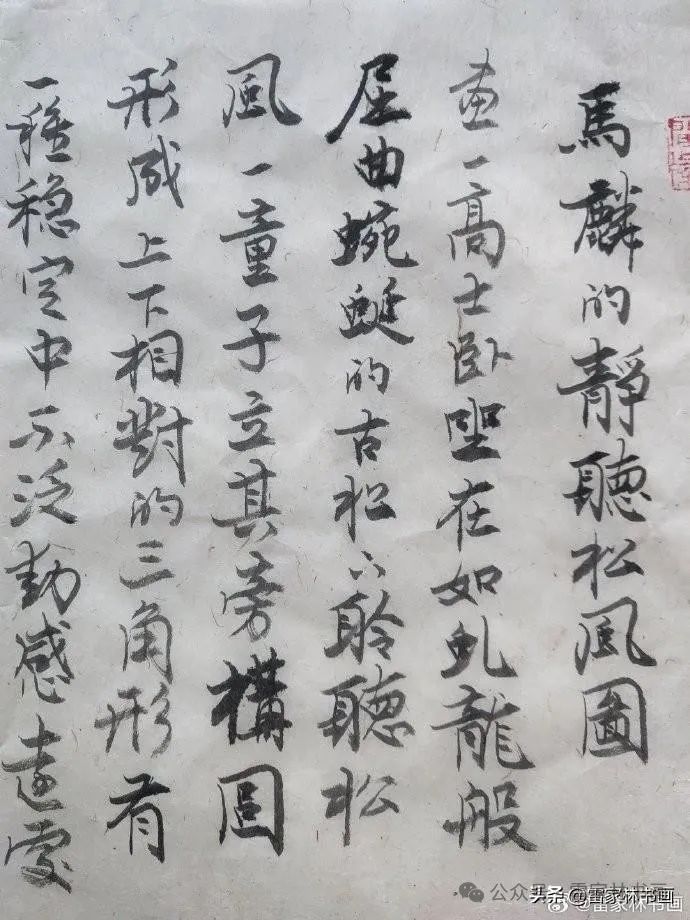 馬麟的靜聽松風圖
畫一高士卧坐在如虬龍般
屈曲蜿蜒的古松下聆聽松
風一童子立其旁構圖
形成上下相對的三角形有
一種稳定中不泛動感遠處
公众号·雷家林书画
头条 @雷家林书画
@雷家林书画